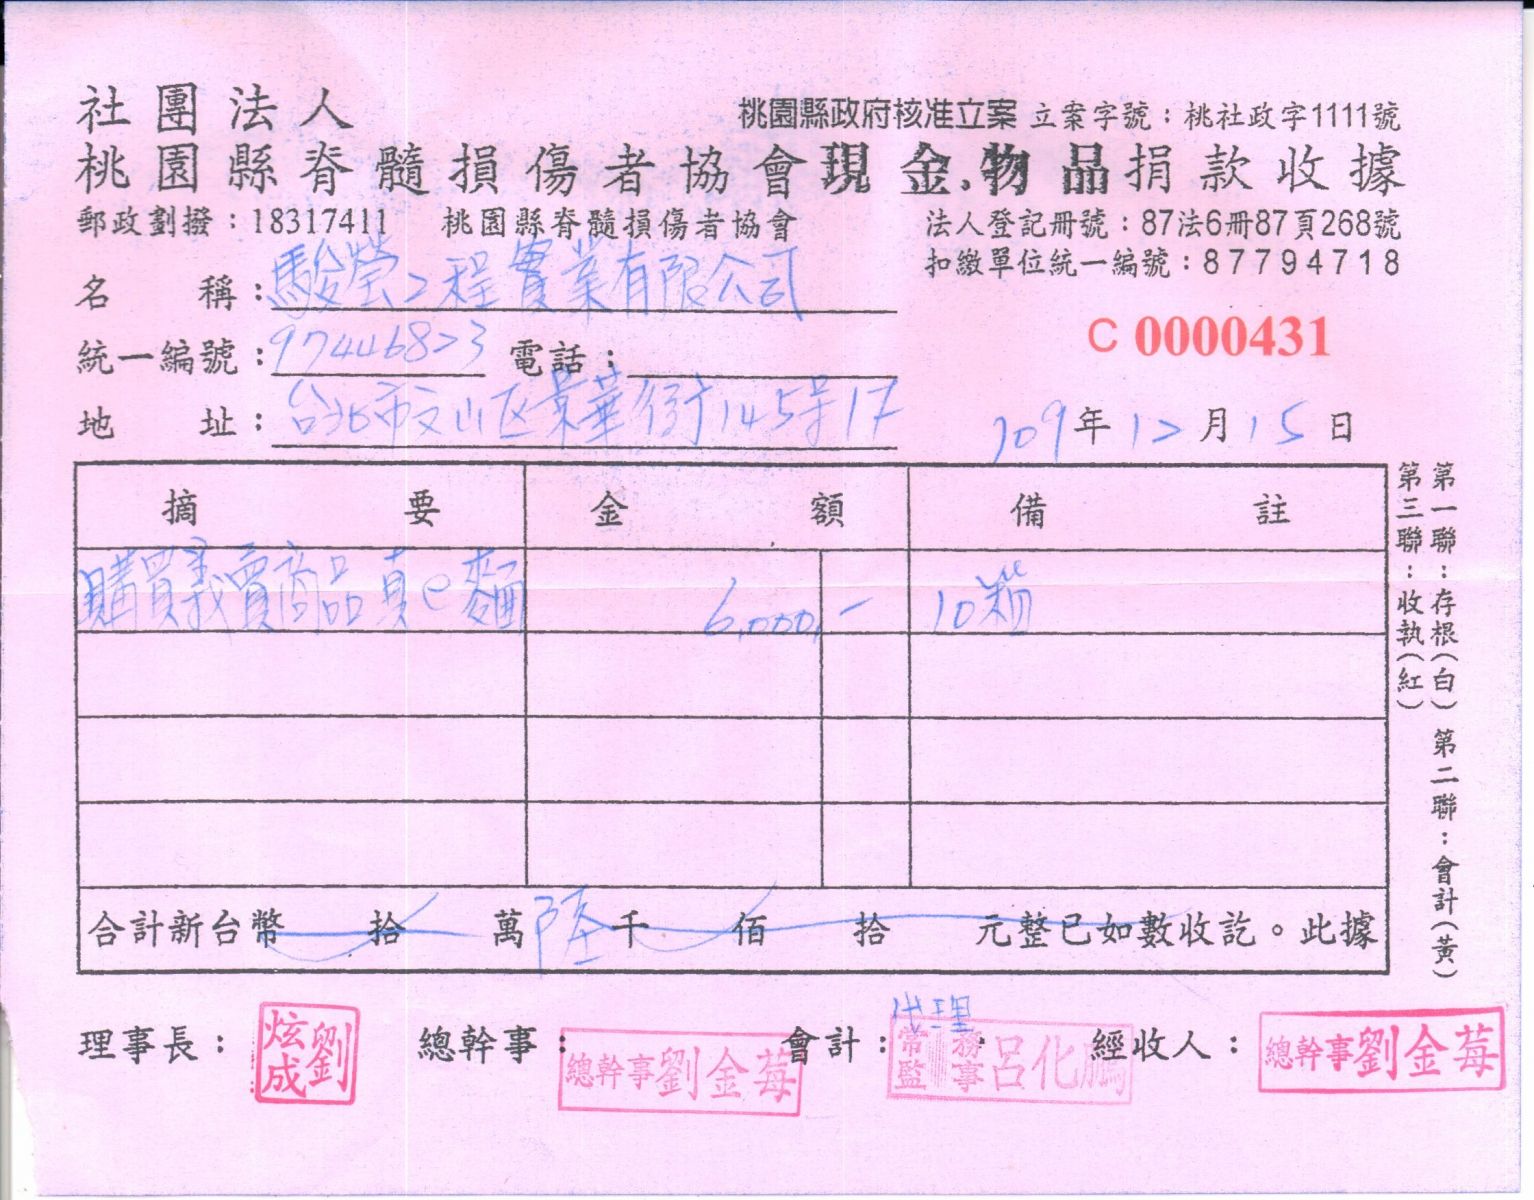 社團法人
桃園縣政府核准立案 立案字號：桃社政字1111號
桃園縣脊髓損傷者協會現金.物品捐款收據
郵政劃撥：18317411 桃園縣脊髓損傷者協會
法人登記冊號：87法6冊87頁268號
扣繳單位統一編號：87794718
名稱：駿瑩工程實業有限公司
C 0000431
統一編號：97446823 電話：
地址：台北市文山区景華街145号17
109年12月15日
摘要 金額 備註
購買義賣商品真e麵 6,000.- 10箱
合計新台幣 拾 萬陸千 佰 拾 元整已如數收訖。此據
第一聯：存根(白) 第二聯：會計(黃)
第三聯：收執(紅)
代理
理事長： 總幹事： 會計： 經收人：
劉炫成
總幹事劉金莓
常務監事呂化鵬
總幹事劉金莓